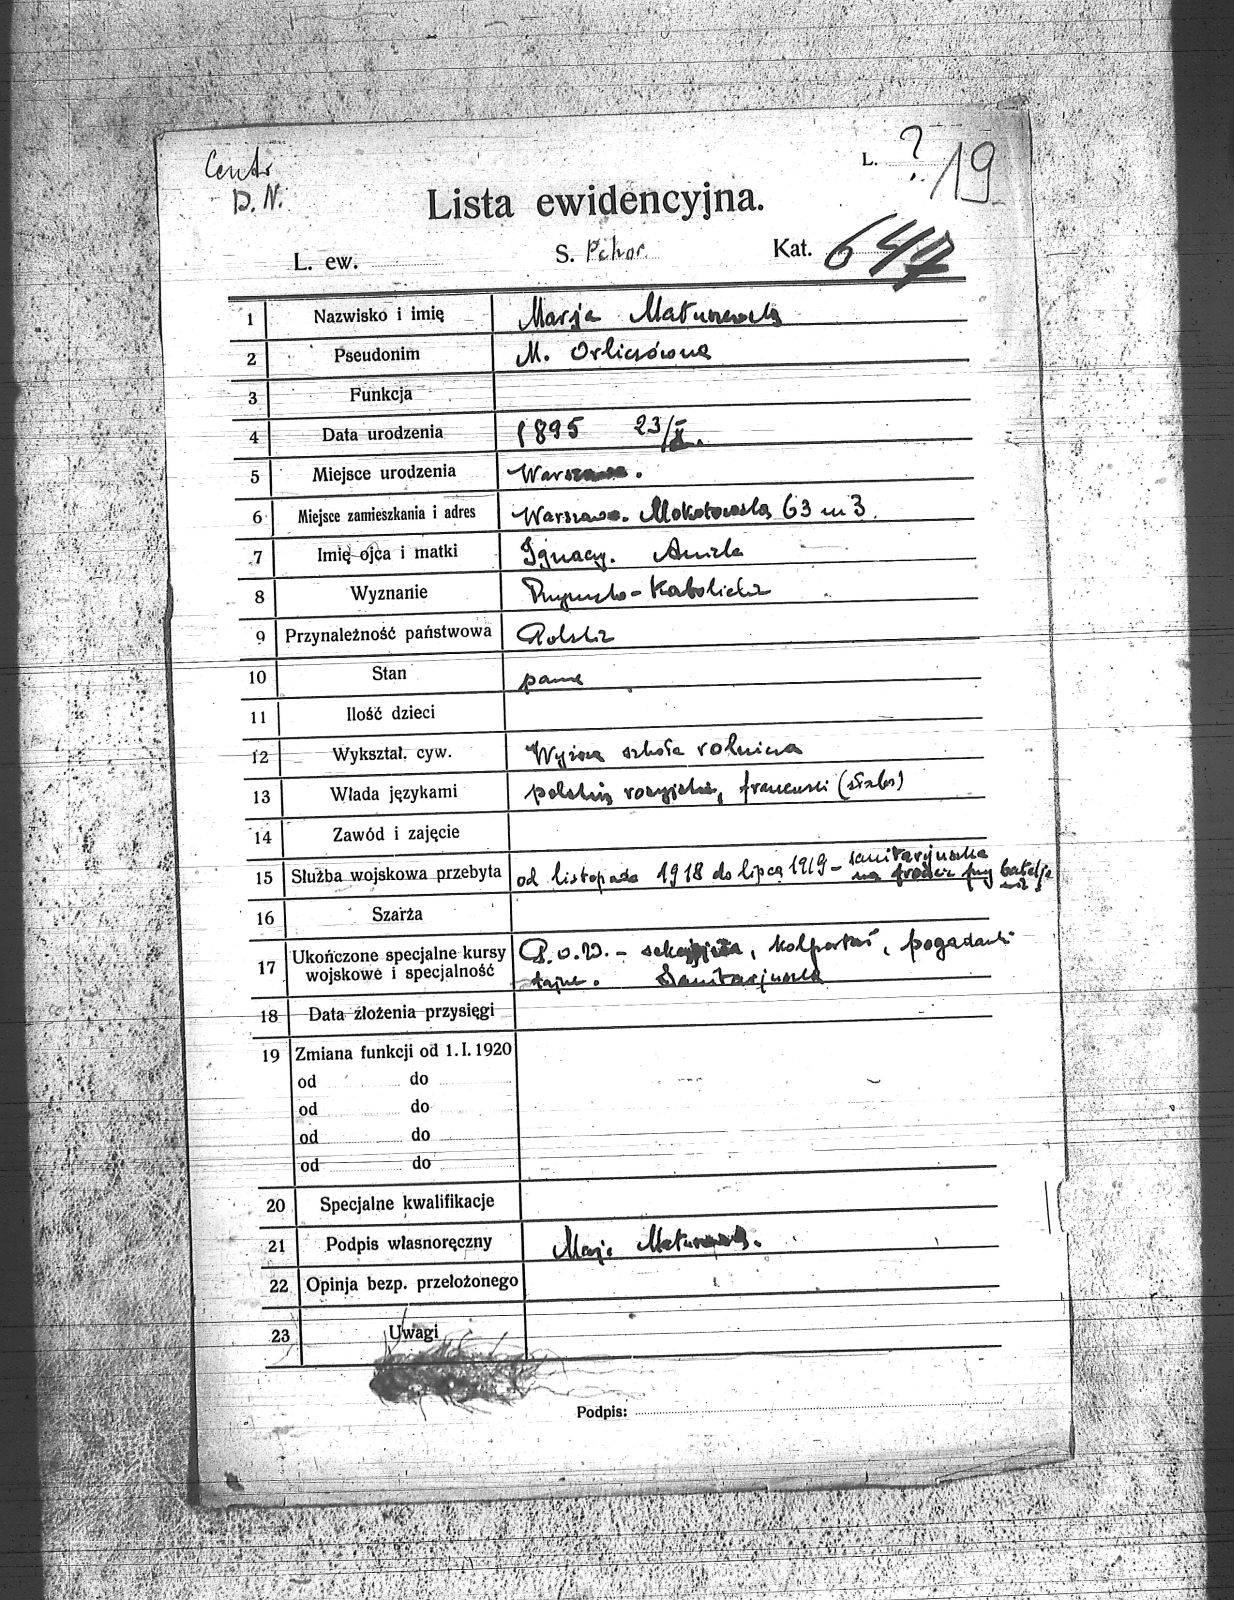 Centr
D. N.
L. ? 19
Lista ewidencyjna.
L. ew. S. Pchor. Kat. 647
1 Nazwisko i imię Marja Matuszewska
2 Pseudonim M. Orliczówna
3 Funkcja
4 Data urodzenia 1895 23/X.
5 Miejsce urodzenia Warszawa.
6 Miejsce zamieszkania i adres Warszawa. Mokotowska 63 m 3.
7 Imię ojca i matki Ignacy. Aniela
8 Wyznanie Rzymsko-Katolickie
9 Przynależność państwowa Polska
10 Stan panna
11 Ilość dzieci
12 Wykształ. cyw. Wyższa szkoła rolnicza
13 Włada językami polskim, rosyjskim, francuski (słabo)
14 Zawód i zajęcie
15 Służba wojskowa przebyta od listopada 1918 do lipca 1919 – sanitarjuszka
na froncie przy
16 Szarża
17 Ukończone specjalne kursy P.O.W. – sekcyjna, kolportaż, pogadanki
wojskowe i specjalność tajne. Sanitarjuszka
18 Data złożenia przysięgi
19 Zmiana funkcji od 1. I. 1920
od do
od do
od do
od do
20 Specjalne kwalifikacje
21 Podpis własnoręczny Marja Matuszewska.
22 Opinja bezp. przełożonego
23 Uwagi
Podpis: